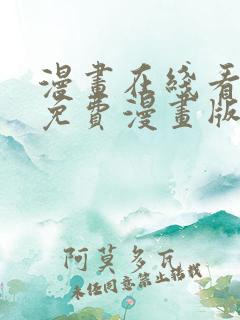 漫畫在綫看
免費漫畫版
阿莫多瓦
未經同意禁止轉載